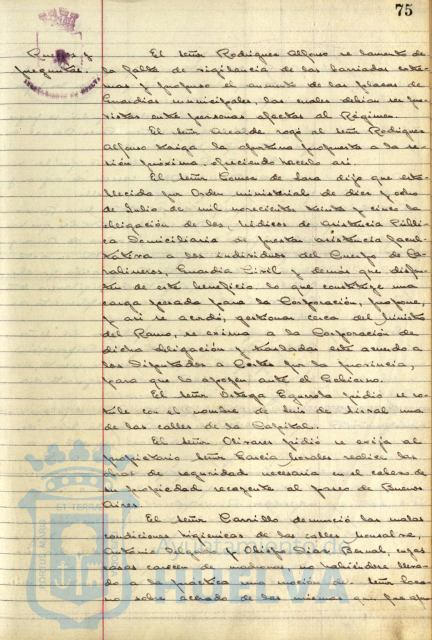 75
Ruegos y
preguntas.
El señor Rodriguez Alfonso se lamenta de
la falta de vigilancia de las barriadas extre-
mas y propuso el aumento de las plazas de
Guardias municipales, las cuales debian ser pro-
vistas entre personas afectas al Régimen.
El señor Alcalde rogó al señor Rodriguez
Alfonso traiga la oportuna propuesta a la se-
sión próxima, ofreciendo hacerlo asi.
El señor Gomez de Lara dijo que esta-
blecida por Orden ministerial de diez y ocho
de Julio de mil novecientos treinta y cinco la
obligación de los Médicos de Asistencia Públi-
ca Domiciliaria de prestar asistencia facul-
tativa a los individuos del Cuerpo de Ca-
rabineros, Guardia Civil y demás que disfru-
tan de este beneficio lo que constituye una
carga pesada para la Corporación, propone,
y asi se acordó, gestionar cerca del Ministro
del Ramo, se exima a la Corporación de
dicha obligación y trasladar este acuerdo a
los Diputados a Cortes por la provincia,
para que lo apoyen ante el Gobierno.
El señor Ortega Egurrola pidió se ro-
tule con el nombre de Luis de Sirval una
de las calles de la Capital.
El señor Olivares pidió se exija al
propietario señor Garcia Morales realice las
obras de seguridad necesaria en el cabezo de
su propiedad recayente al paseo de Buenos
Aires.
El señor Carrillo denunció las malas
condiciones higienicas de las calles
Antonio Delgado y Obispo Diaz Bernal, cuyas
casas carecen de madronas no habiéndose lleva-
do a la practica una moción del señor
no sobre acerado de las mismas que fue apro
PORTUS MARIS
ET TERRAE
HUELVA